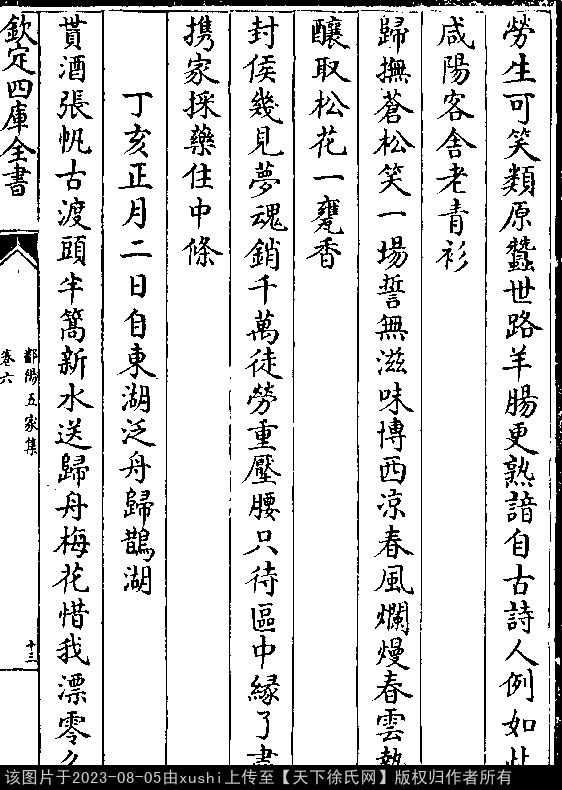 勞生可笑類原蠶世路羊腸更熟諳自古詩人例如此
咸陽客舎老青衫
歸撫蒼松笑一場誓無滋味博西凉春風爛熳春雲熱
釀取松花一甕香
封侯幾見夢魂銷千萬徒勞重壓腰只待區中縁了畫
携家採藥住中條
丁亥正月二日自東湖泛舟歸鵲湖
貰酒張帆古渡頭半篙新水送歸舟梅花惜我漂零久
欽定四庫全書
鄱陽五家集
卷六
十三
该图片于2023-08-05由xushi上传至【天下徐氏网】版权归作者所有